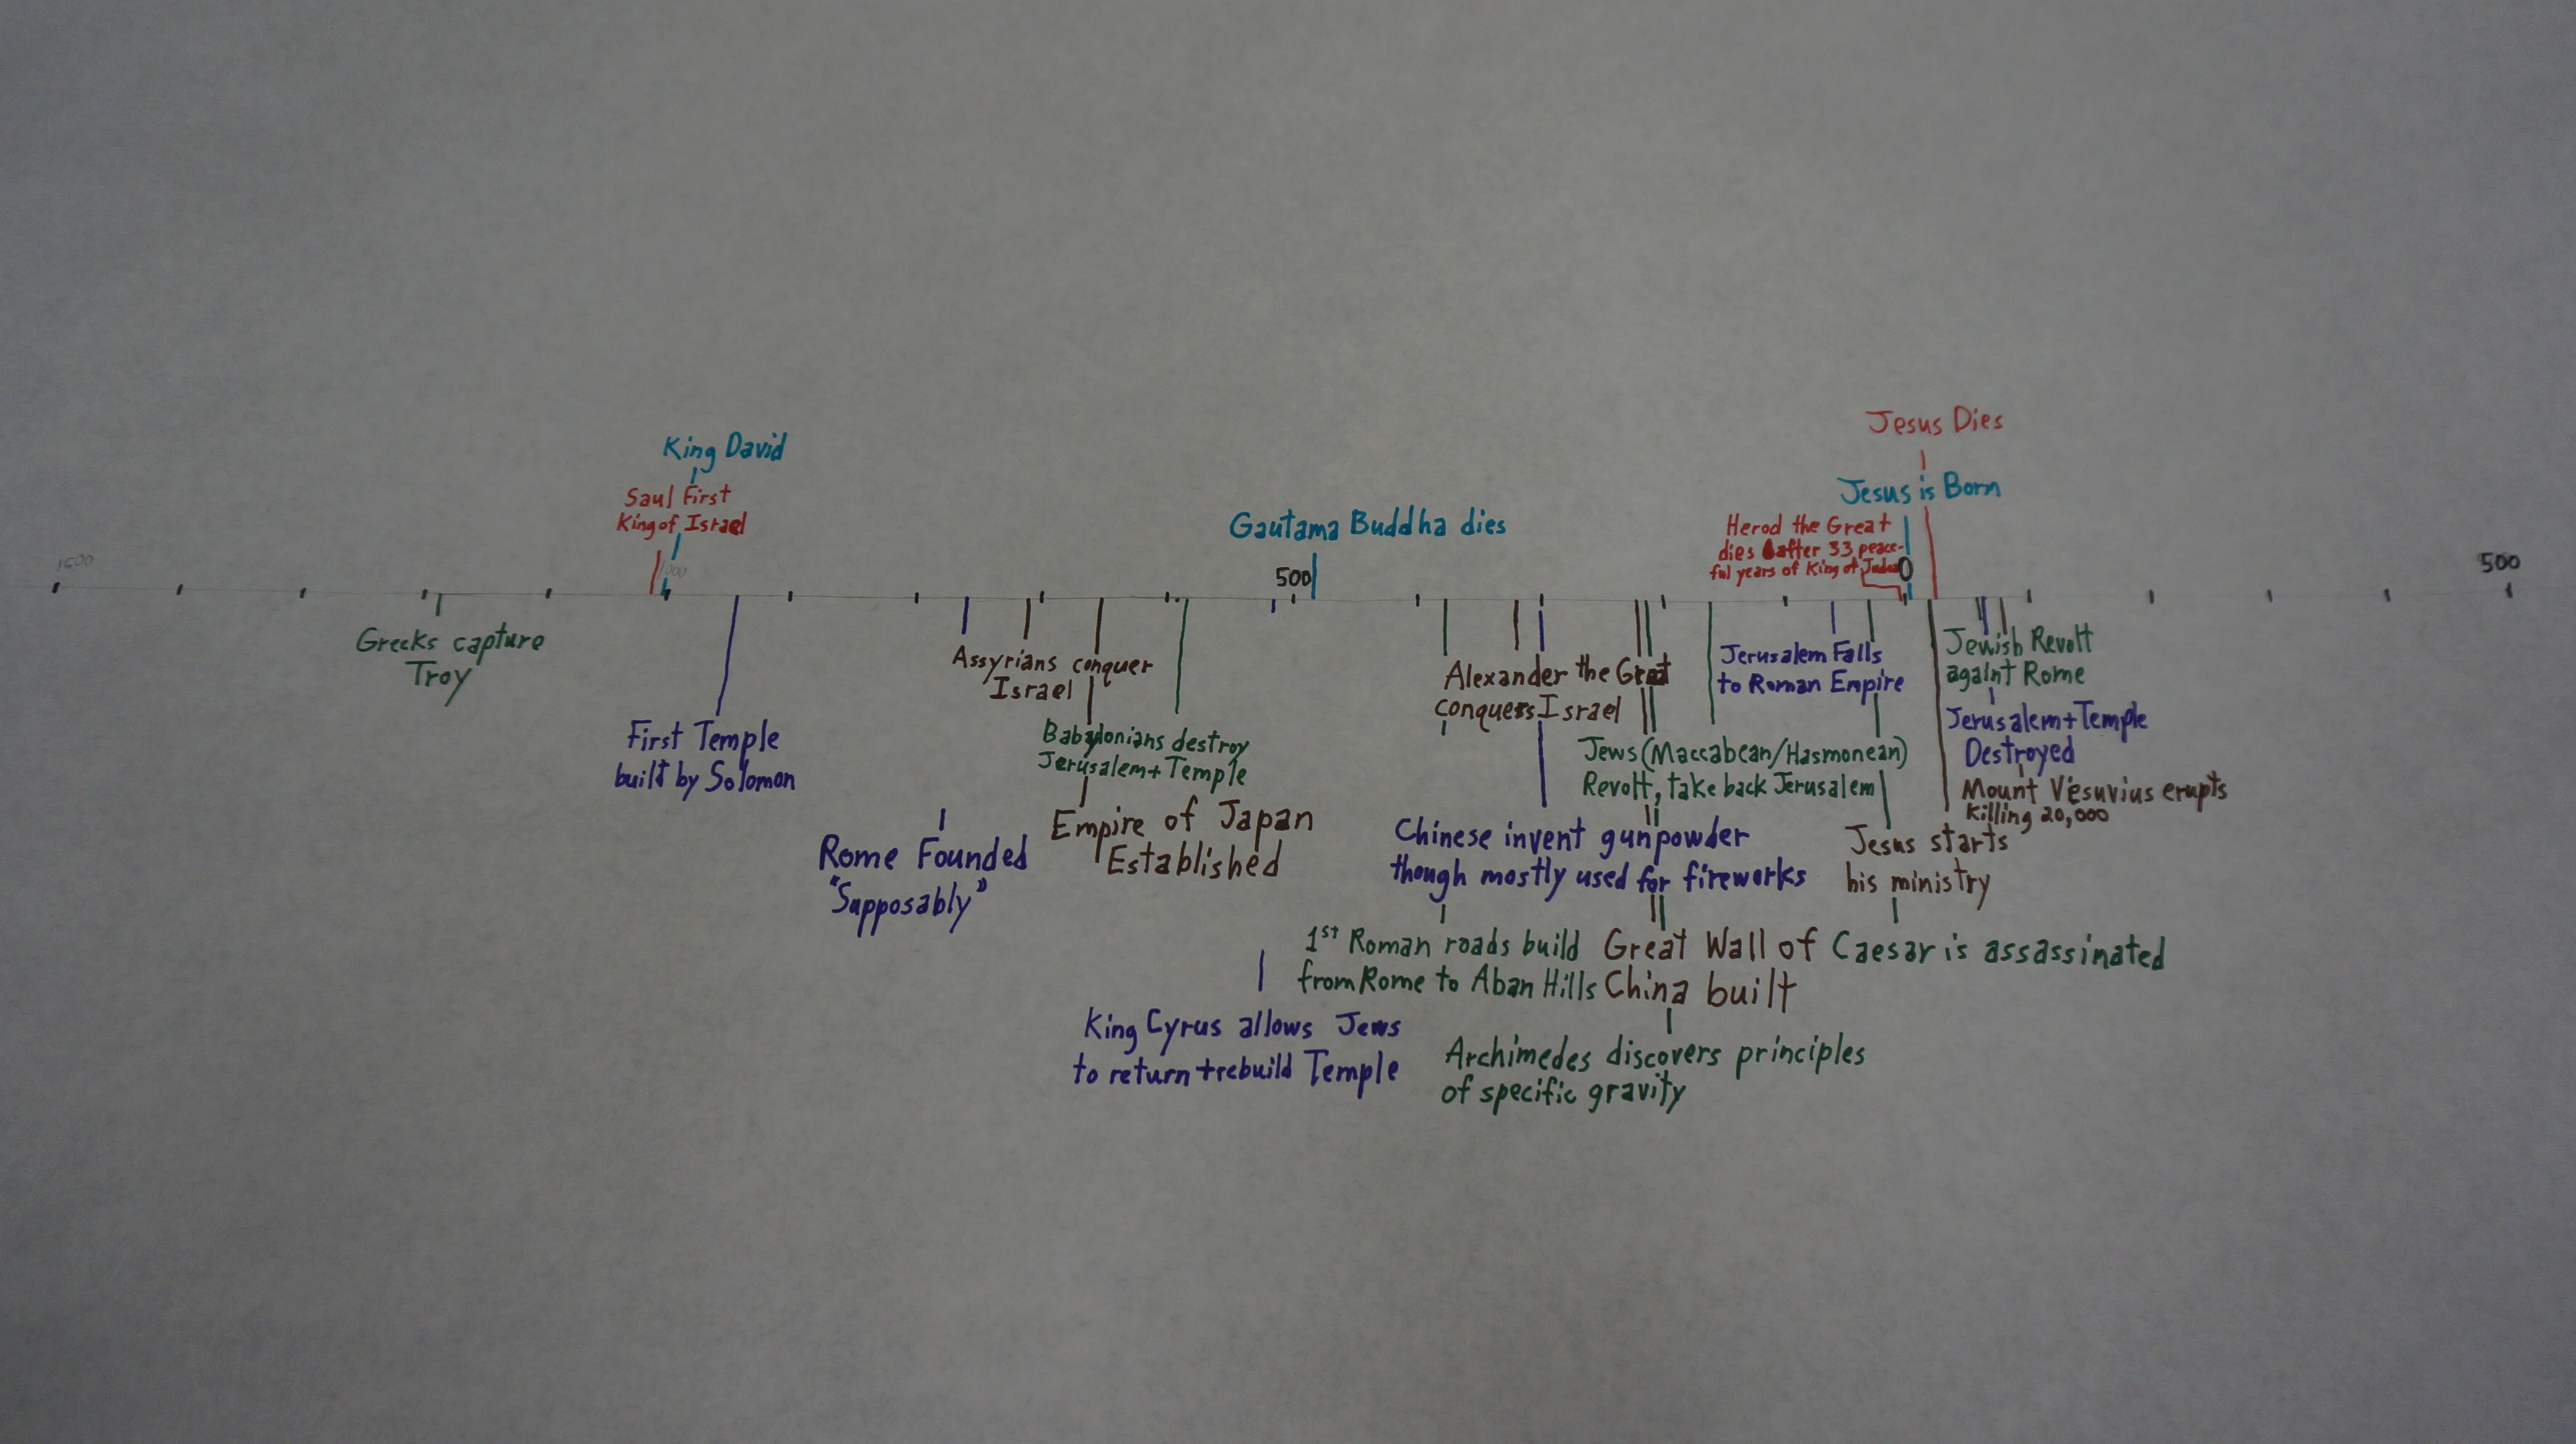 Jesus Dies
King David
Jesus is Born
Saul First
King of Israel
Gautama Buddha dies
Herod the Great
dies after 33 peace-
ful years of King of Judea
1500
1000
500
0
500
Greeks capture
Troy
First Temple
built by Solomon
Rome Founded
"Supposably"
Assyrians conquer
Israel
Babylonians destroy
Jerusalem + Temple
Empire of Japan
Established
King Cyrus allows Jews
to return + rebuild Temple
Alexander the Great
conquers Israel
Jews (Maccabean/Hasmonean)
Revolt, take back Jerusalem
Chinese invent gunpowder
though mostly used for fireworks
1st Roman roads build
from Rome to Aban Hills
Great Wall of
China built
Archimedes discovers principles
of specific gravity
Jerusalem Falls
to Roman Empire
Jesus starts
his ministry
Caesar is assassinated
Jewish Revolt
againt Rome
Jerusalem + Temple
Destroyed
Mount Vesuvius erupts
killing 20,000